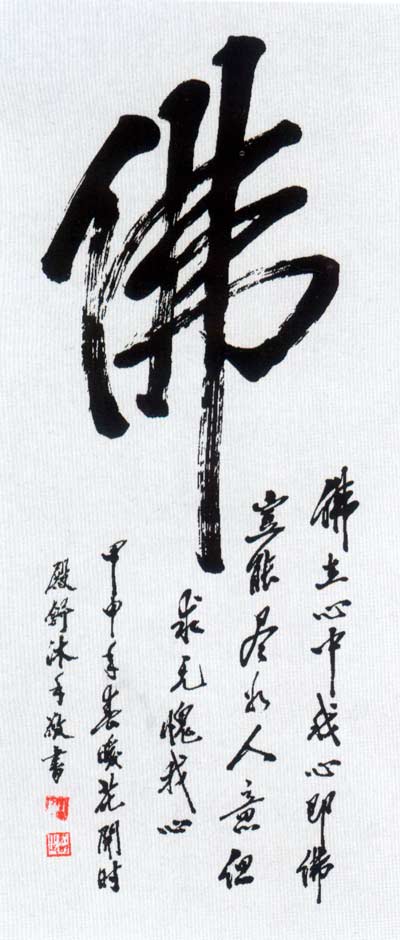 佛
佛在心中我心即佛
豈能尽如人意但
求无愧我心
甲申年春暖花開时
殿舒沐手敬書